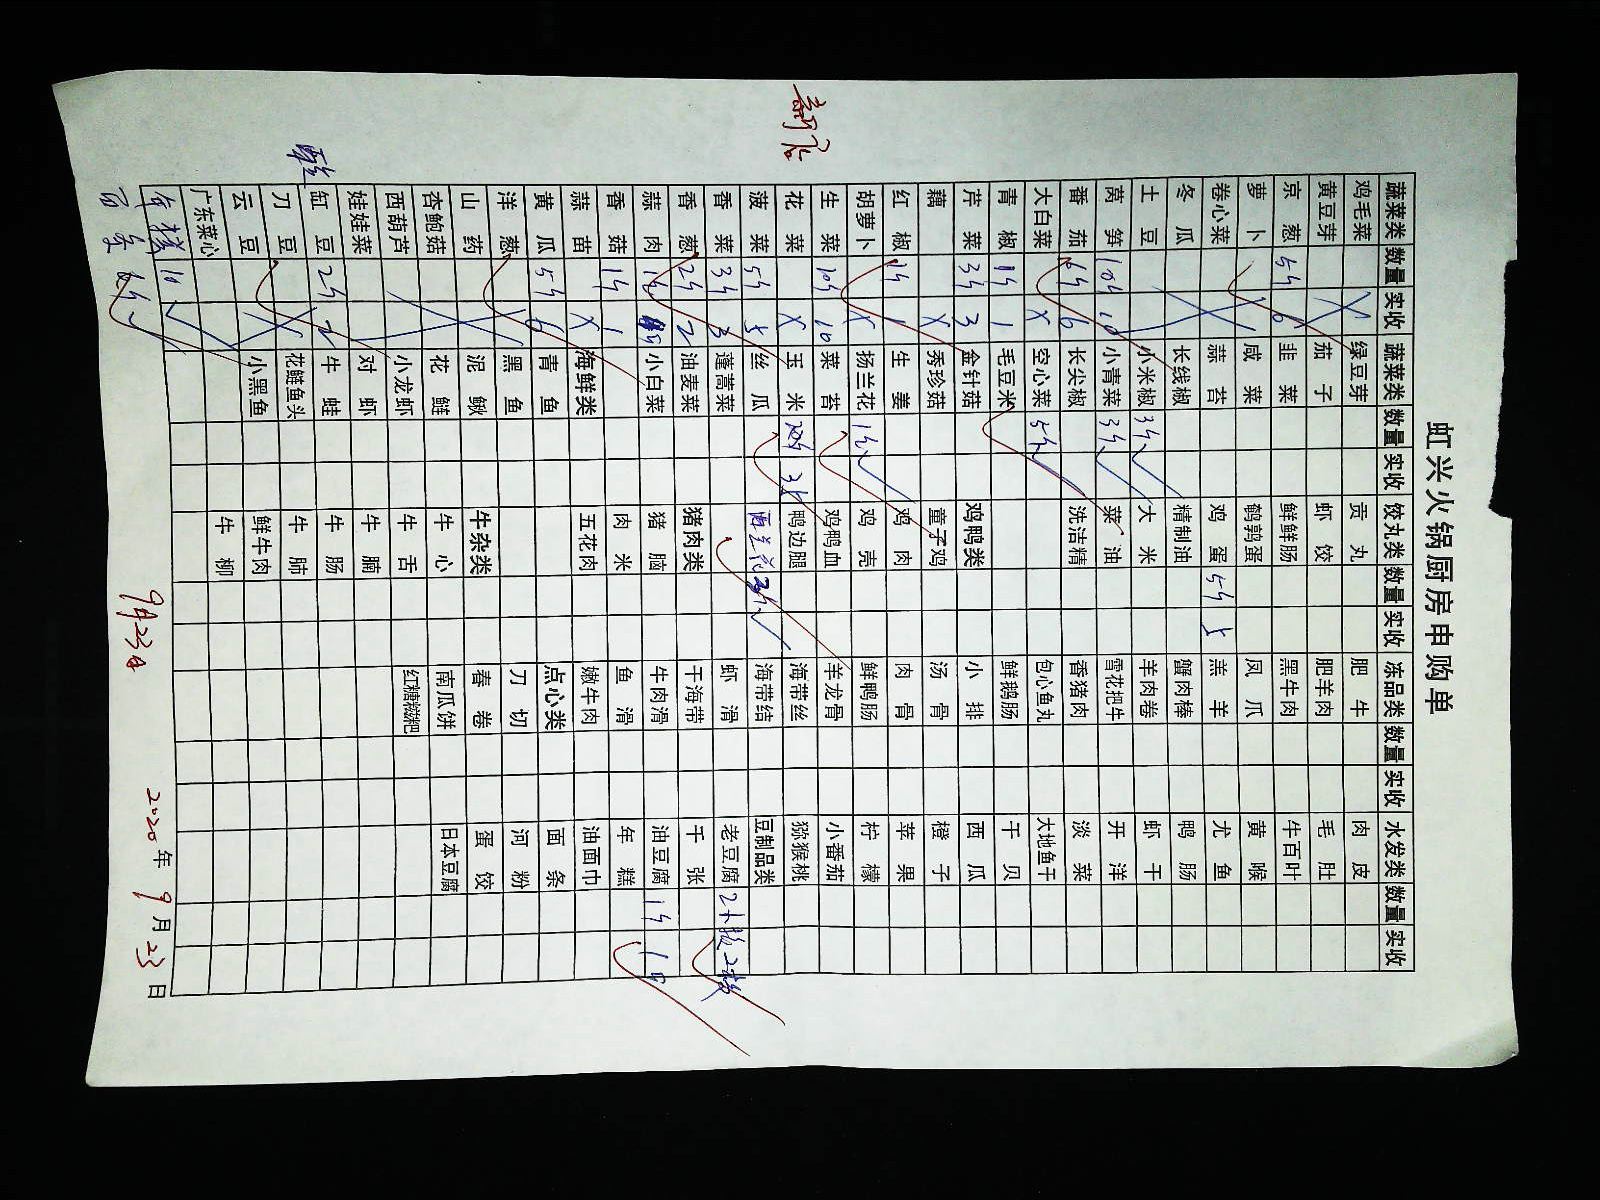 虹兴火锅厨房申购单
新店
蔬菜类 数量 实收 蔬菜类 数量 实收 饺丸类 数量 实收 冻品类 数量 实收 水发类 数量 实收
鸡毛菜 绿豆芽 贡丸 肥牛 肉皮
黄豆芽 茄子 虾饺 肥羊肉 毛肚
京葱 5斤 6 韭菜 鲜鲜肠 黑牛肉 牛百叶
萝卜 咸菜 鹌鹑蛋 凤爪 黄喉
卷心菜 蒜苔 鸡蛋 5斤 5 羔羊 尤鱼
冬瓜 长线椒 精制油 蟹肉棒 鸭肠
土豆 小米椒 3斤 大米 羊肉卷 虾干
莴笋 10斤 10 小青菜 3斤 菜油 雪花把牛 开洋
番茄 6斤 6 长尖椒 洗洁精 香猪肉 淡菜
大白菜 X 空心菜 5斤 包心鱼丸 大地鱼干
青椒 1斤 1 毛豆米 鲜鹅肠 干贝
芹菜 3斤 3 金针菇 鸡鸭类 小排 西瓜
藕 X 秀珍菇 童子鸡 汤骨 橙子
红椒 1斤 1 生姜 鸡肉 肉骨 苹果
胡萝卜 X 扬兰花 1斤 鸡壳 鲜鸭肠 柠檬
生菜 10斤 10 菜苔 鸡鸭血 羊龙骨 小番茄
花菜 X 玉米 鸭边腿 海带丝 猕猴桃
菠菜 5斤 5 丝瓜 西兰花 海带结 豆制品类
香菜 3斤 3 蓬蒿菜 虾滑 老豆腐 2板 2板
香葱 2斤 2 油麦菜 猪肉类 干海带 千张
蒜肉 小白菜 猪脑 牛肉滑 油豆腐 1斤 1斤
香菇 1斤 1 肉米 鱼滑 年糕
蒜苗 X 海鲜类 五花肉 嫩牛肉 油面巾
黄瓜 5斤 6 青鱼 点心类 面条
洋葱 黑鱼 刀切 河粉
山药 泥鳅 牛杂类 春卷 蛋饺
杏鲍菇 花鲢 牛心 南瓜饼 日本豆腐
西葫芦 小龙虾 牛舌 红糖糍粑
娃娃菜 对虾 牛腩
缸豆 2斤 2 牛蛙 牛肠
刀豆 花鲢鱼头 牛肺
云豆 小黑鱼 鲜牛肉
广东菜心 牛柳
9月23日 2020年 9月 23日